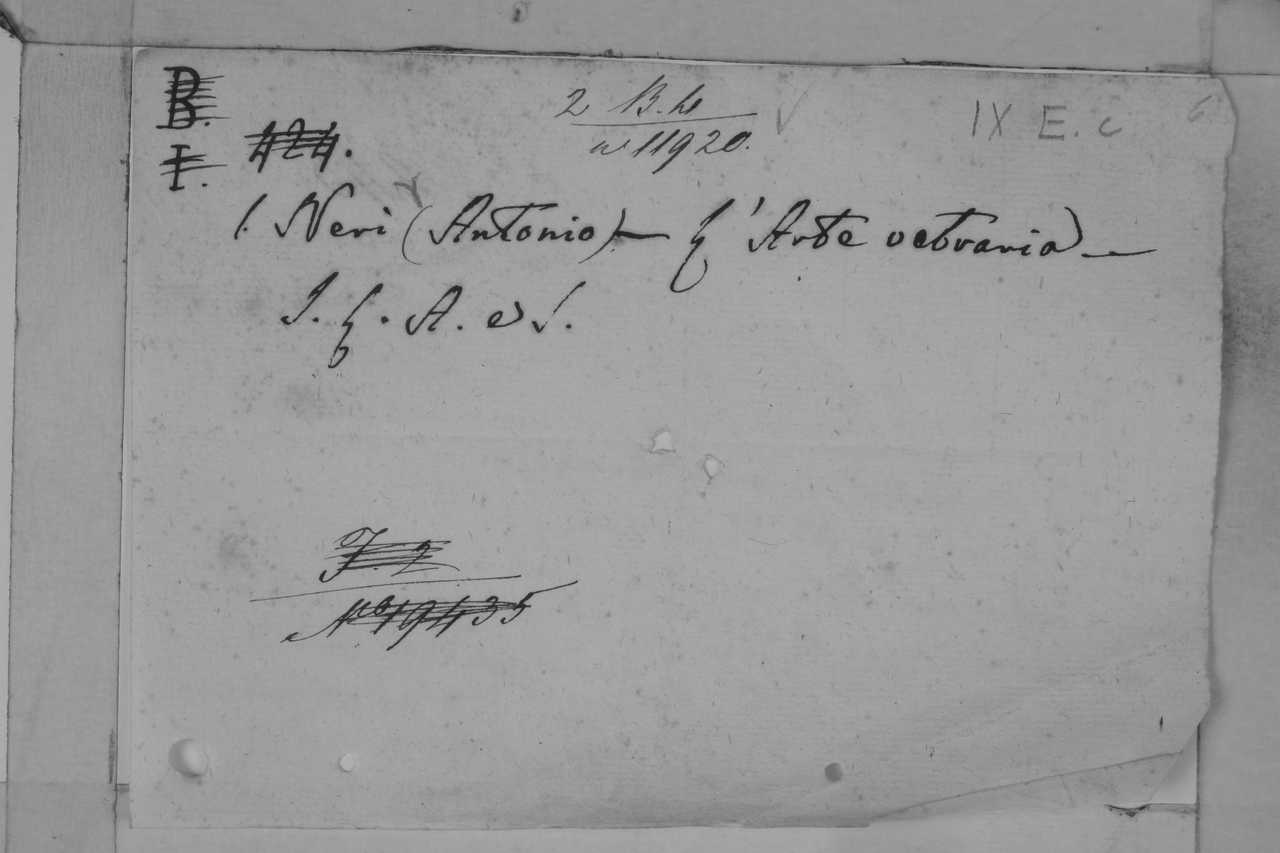 B.
I. 424.
2 B. b
n 11920.
IX E. c 6
1. Neri (Antonio) — L'Arte vetraria —
S. L. A. e S.
F. 2
Nº 19435